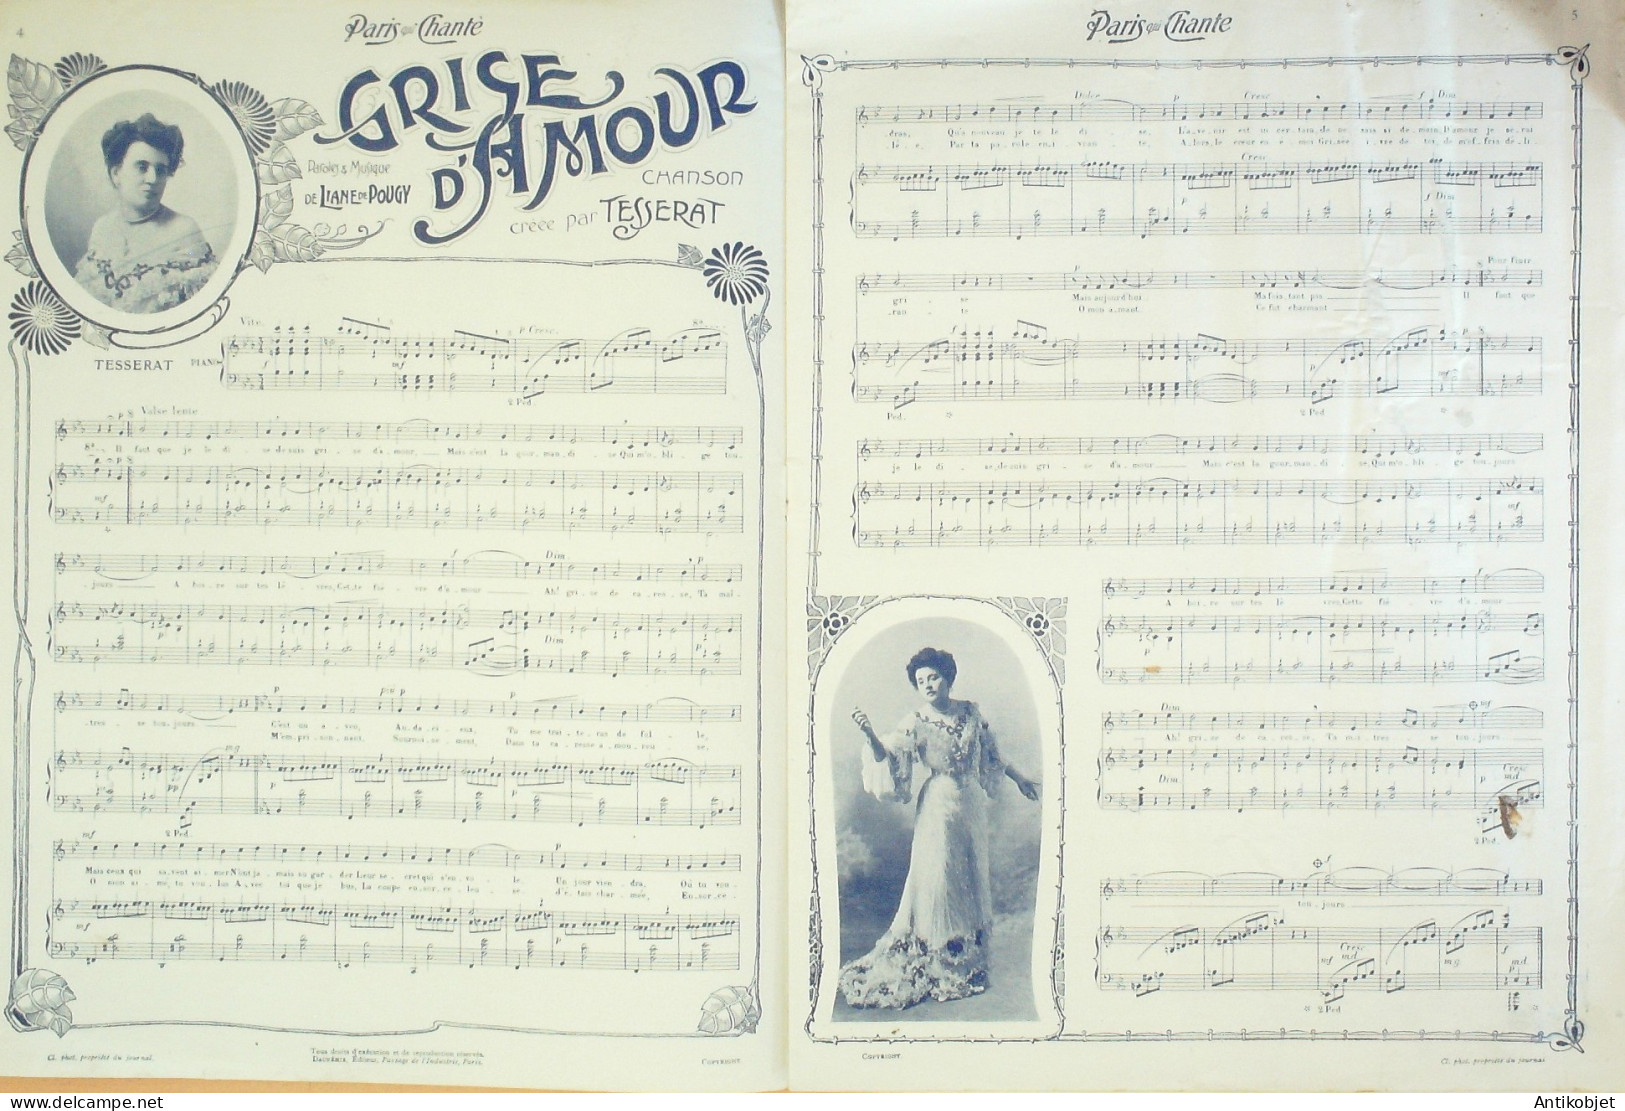 4
Paris qui Chante
GRISE
D'AMOUR
Paroles & Musique
DE LIANE DE POUGY
CHANSON
créée par TESSERAT
TESSERAT
Vite.
PIANO
p Cresc.
mf
2 Ped.
Valse lente
Il faut que je le di - se, je suis gri - se d'a - mour, Mais c'est la gour - man - di - se Qui m'o - bli - ge tou -
mf
f Dim.
- jours A boi - re sur tes lè - vres, Cet - te fiè - vre d'a - mour Ah! gri - se de ca - res - se, Ta maî -
Dim
p
- tres - se tou - jours C'est un a - veu, Au - da - ci - eux, Tu me trai - te - ras de fol - le,
M'em - pri - son - nant, Sour - noi - se - ment, Dans ta ca - resse a - mou - reu - se,
pp
mg
2 Ped.
mf
Mais ceux qui sa - vent ai - mer N'ont ja - mais su gar - der Leur se - cret qui s'en - vo - le. Un jour vien - dra, Où tu vou -
O mon ai - mé, tu vou - lus A - vec toi que je bus, La coupe en - sor - ce - leu - se. J'é - tais char - mée, En - sor - ce -
mf
Cl. phot. propriété du journal.
Tous droits d'exécution et de reproduction réservés.
Passage de l'Industrie, Paris.
COPYRIGHT.
Paris qui Chante
5
Dolce
p
Cresc
f Dim
- dras, Qu'à nouveau je te le di - se, L'a - ve - nir est in - cer - tain, Je ne sais si demain, D'amour je se - rai
- lé - e, Par ta pa - role en - i - vran - te, A - lors, le cœur en é - moi Gri - sée i - vre de toi, de m'of - frir dé - li -
Cresc
p
f Dim
gri - se Mais aujourd'hui. Ma fois, tant pis Il faut que
- ran - te O mon a - mant. Ce fut charmant
Pour finir.
Ped.
2 Ped
je le di - se, Je suis gri - se d'a - mour Mais c'est la gour - man - di - se, Qui m'o - bli - ge toujours
mf
A boi - re sur tes lè - vres, Cette fiè - vre d'a - mour
Dim
mf
Ah! gri - se de ca - res - se, Ta maî - tres - se tou - jours
Dim
p
Cresc
md
2 Ped.
f
tou - jours
Cresc
mf
md
mg
md
2 Ped
COPYRIGHT.
Cl. phot. propriété du journal
Antikobjet